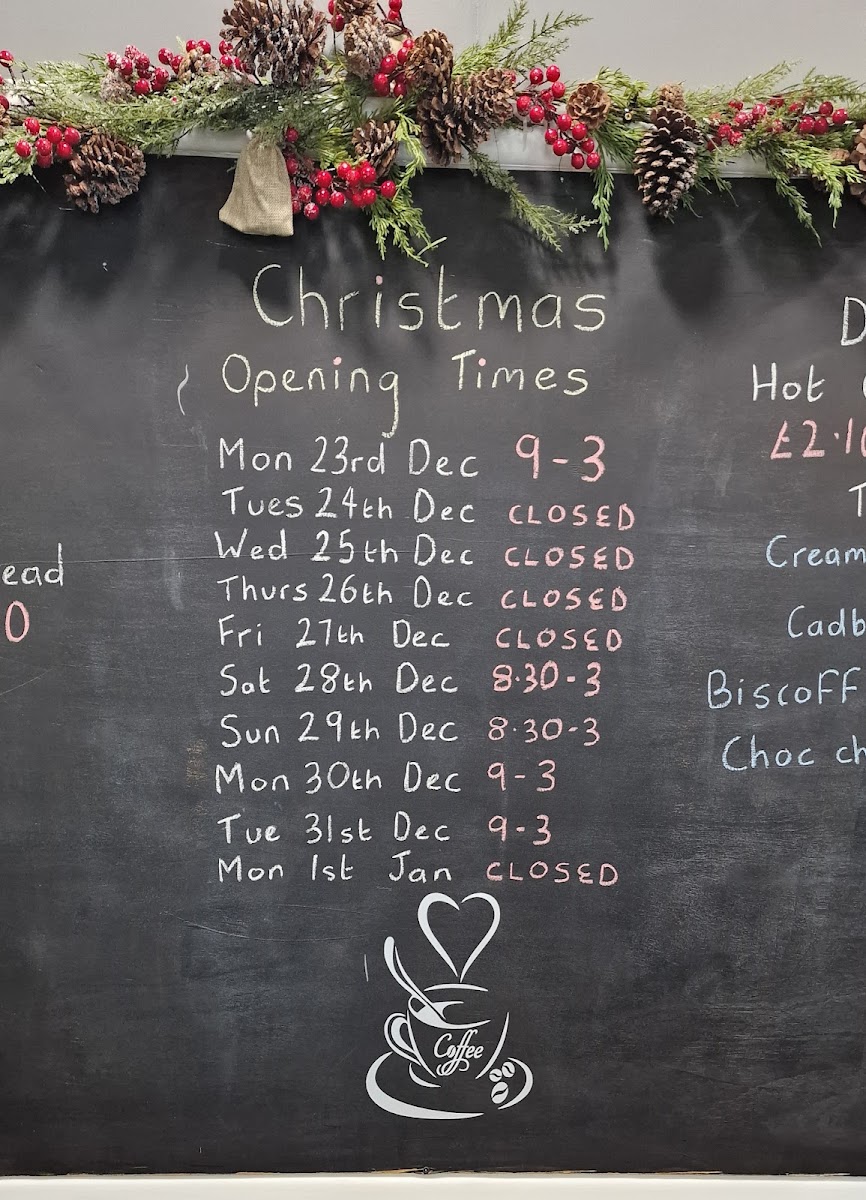 Christmas
Opening Times
Mon 23rd Dec 9-3
Tues 24th Dec CLOSED
Wed 25th Dec CLOSED
Thurs 26th Dec CLOSED
Fri 27th Dec CLOSED
Sat 28th Dec 8.30-3
Sun 29th Dec 8.30-3
Mon 30th Dec 9-3
Tue 31st Dec 9-3
Mon 1st Jan CLOSED
Coffee
ead
0
D
Hot
£2.10
T
Cream
Cadb
Biscoff
Choc ch